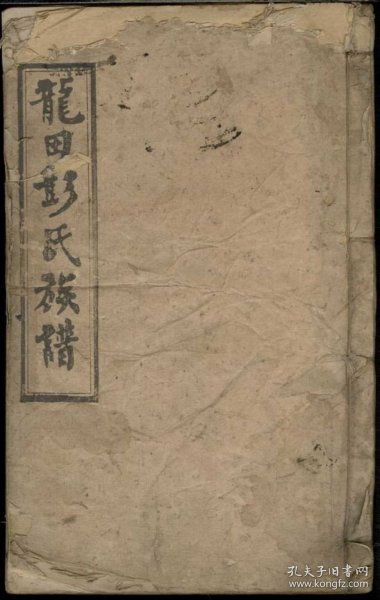 龍田彭氏族譜
孔夫子旧书网
www.kongfz.com